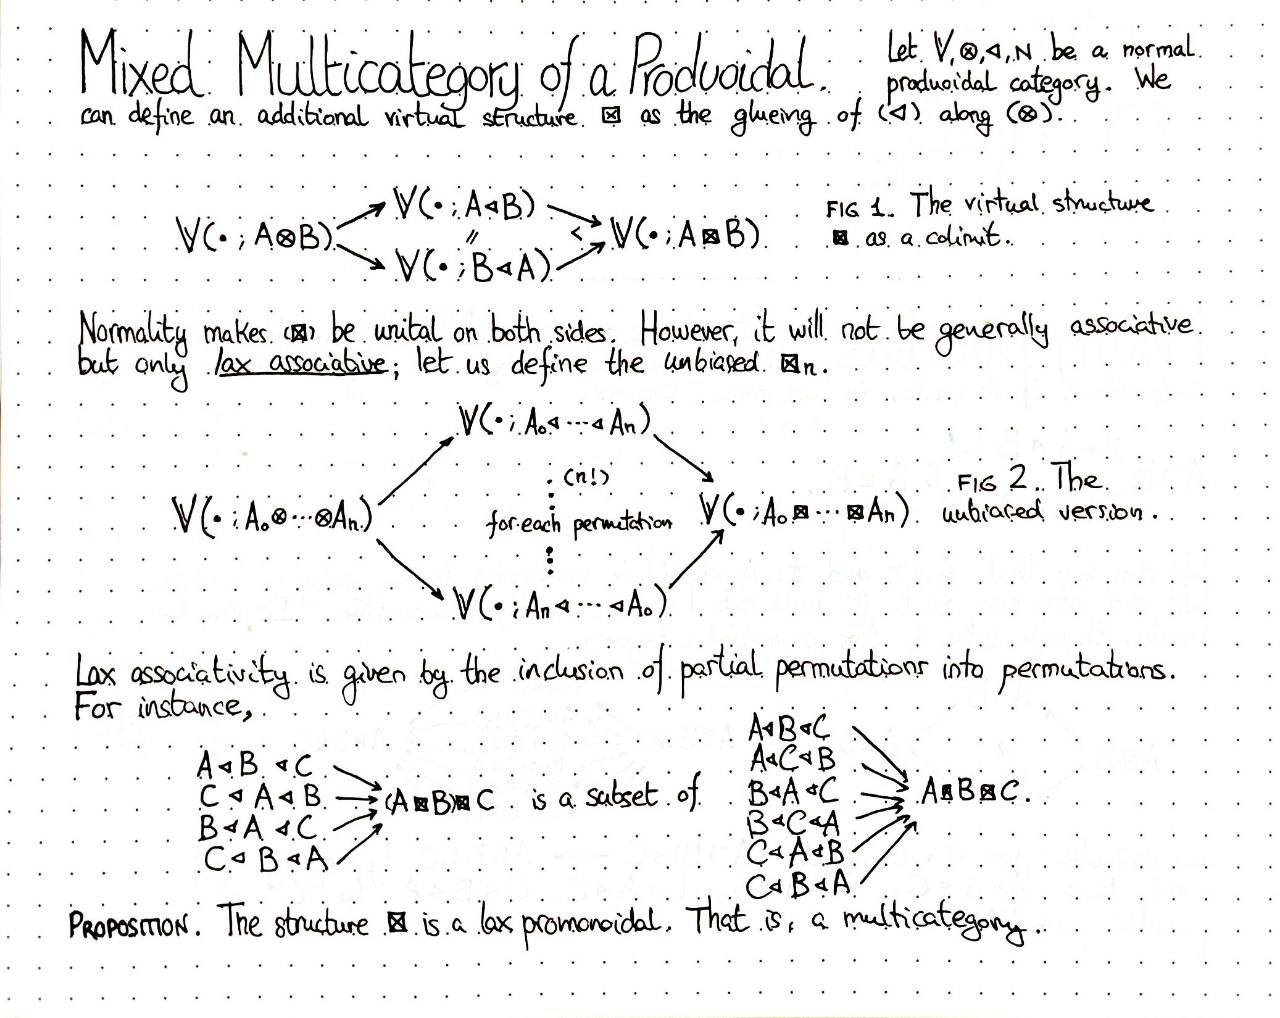 Mixed Multicategory of a Produoidal.
Let 𝕍,⊗,◁,N be a normal
produoidal category. We
can define an additional virtual structure ⊠ as the glueing of (◁) along (⊗).
𝕍(•;A◁B)
𝕍(•;A⊗B)
//
𝕍(•;A⊠B)
𝕍(•;B◁A)
FIG 1. The virtual structure
⊠ as a colimit.
Normality makes (⊠) be unital on both sides. However, it will not be generally associative
but only lax associative; let us define the unbiased ⊠n.
𝕍(•;A₀◁⋯◁An)
(n!)
𝕍(•;A₀⊗⋯⊗An)
for each permutation
𝕍(•;A₀⊠⋯⊠An)
𝕍(•;An◁⋯◁A₀)
FIG 2. The
unbiaced version.
Lax associativity is given by the inclusion of partial permutations into permutations.
For instance,
A◁B◁C
C◁A◁B
B◁A◁C
C◁B◁A
(A⊠B)⊠C is a subset of
A◁B◁C
A◁C◁B
B◁A◁C
B◁C◁A
C◁A◁B
C◁B◁A
A⊠B⊠C.
PROPOSITION. The structure ⊠ is a lax promonoidal. That is, a multicategory.